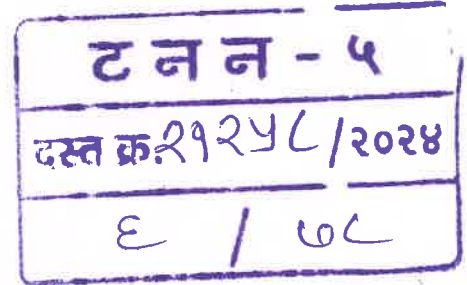 ट न न - ५
दस्त क्र.२१२५८/२०२४
६ / ७८